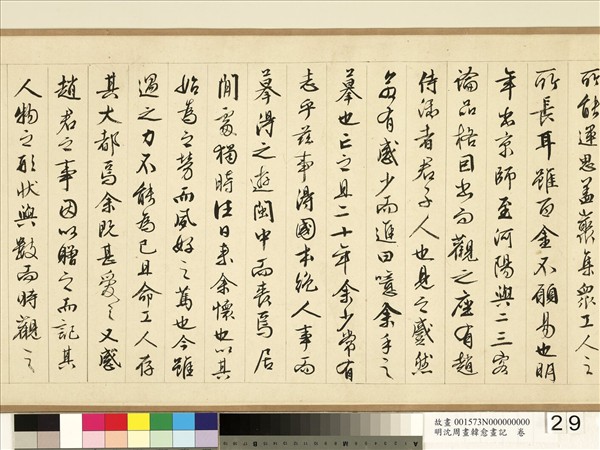 所能運思盖藂集衆工人之
所長耳雖百金不願易也明
年出京師至河陽與二三客
論品格因出而觀之座有趙
侍御者君子人也見之慼然
若有感少而進曰噫余手之
摹也亡之且二十年余少常有
志乎茲事得國本絶人事而
摹得之遊閩中而喪焉居
閒處獨時往日来余懷也以其
始為之勞而夙好之篤也今雖
遇之力不能為已且命工人存
其大都焉余既甚愛之又感
趙君之事因以贈之而記其
人物之形狀與數而時觀之
故畫 001573N000000000
明沈周畫韓愈畫記 卷
29